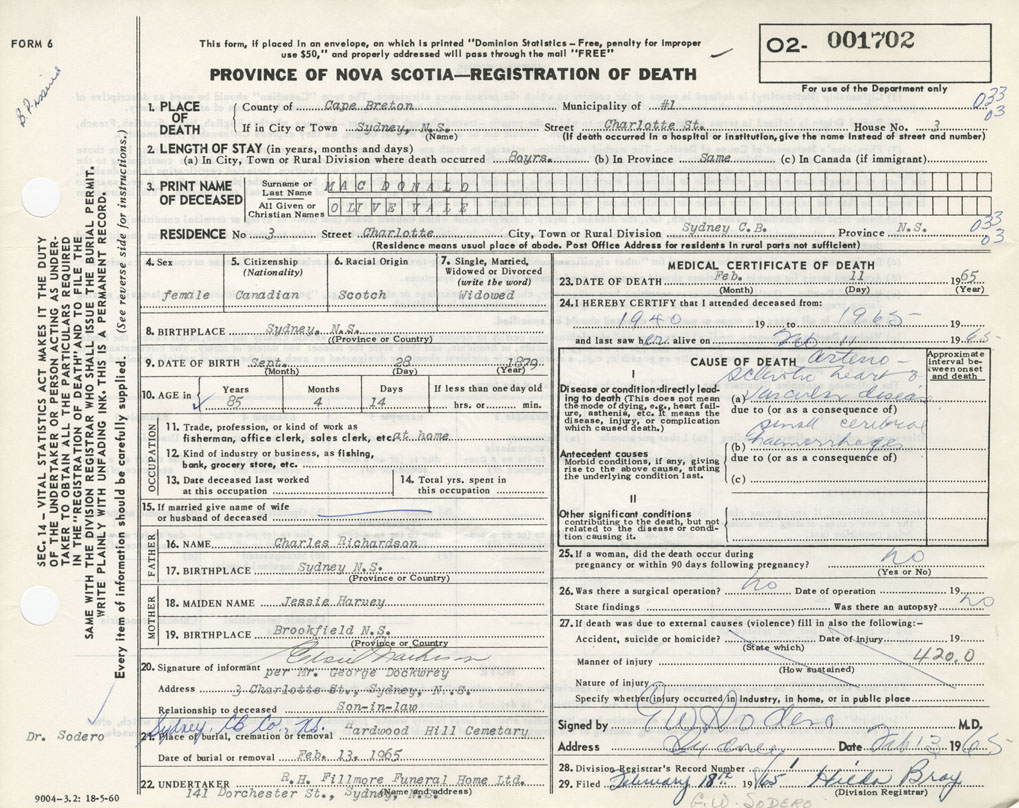 FORM 6
This form, if placed in an envelope, on which is printed "Dominion Statistics – Free, penalty for improper
use $50," and properly addressed will pass through the mail "FREE"
PROVINCE OF NOVA SCOTIA—REGISTRATION OF DEATH
O2- 001702
For use of the Department only
SEC. 14 – VITAL STATISTICS ACT MAKES IT THE DUTY
OF THE UNDERTAKER OR PERSON ACTING AS UNDER-
TAKER TO OBTAIN ALL THE PARTICULARS REQUIRED
IN THE "REGISTRATION OF DEATH" AND TO FILE THE
SAME WITH THE DIVISION REGISTRAR WHO SHALL ISSUE THE BURIAL PERMIT.
WRITE PLAINLY WITH UNFADING INK. THIS IS A PERMANENT RECORD.
Every item of information should be carefully supplied. (See reverse side for instructions.)
1. PLACE OF DEATH
County of Cape Breton Municipality of #1 033
03
If in City or Town Sydney, N.S. Street Charlotte St. House No. 3
(Name) (If death occurred in a hospital or institution, give the name instead of street and number)
2. LENGTH OF STAY (in years, months and days)
(a) In City, Town or Rural Division where death occurred 80yrs. (b) In Province Same (c) In Canada (if immigrant)
3. PRINT NAME OF DECEASED
Surname or Last Name MAC DONALD
All Given or Christian Names OLIVE VALE
RESIDENCE No 3 Street Charlotte City, Town or Rural Division Sydney C.B. Province N.S. 033
03
(Residence means usual place of abode. Post Office Address for residents in rural parts not sufficient)
4. Sex female
5. Citizenship (Nationality) Canadian
6. Racial Origin Scotch
7. Single, Married, Widowed or Divorced (write the word) Widowed
8. BIRTHPLACE Sydney. N.S.
((Province or Country)
9. DATE OF BIRTH Sept. 28 1879
(Month) (Day) (Year)
10. AGE in Years 85 Months 4 Days 14 If less than one day old hrs. or min.
OCCUPATION
11. Trade, profession, or kind of work as
fisherman, office clerk, sales clerk, etc. at home
12. Kind of industry or business, as fishing,
bank, grocery store, etc.
13. Date deceased last worked at this occupation
14. Total yrs. spent in this occupation
15. If married give name of wife
or husband of deceased
FATHER
16. NAME Charles Richardson
17. BIRTHPLACE Sydney N.S.
(Province or Country)
MOTHER
18. MAIDEN NAME Jessie Harvey
19. BIRTHPLACE Brookfield N.S.
(Province or Country)
20. Signature of informant
per Mr. George Dockwrey
Address 3 Charlotte St., Sydney, N.S.
Relationship to deceased Son-in-law
Sydney, CB Co., N.S.
21. Place of burial, cremation or removal "ardwood Hill Cemetary
Date of burial or removal Feb. 13, 1965
22. UNDERTAKER R.H. Fillmore Funeral Home Ltd.
141 Dorchester St., Sydney, N.S.
(Name and address)
Dr. Sodero
9004–3.2: 18-5-60
MEDICAL CERTIFICATE OF DEATH
23. DATE OF DEATH Feb. 11 1965
(Month) (Day) (Year)
24. I HEREBY CERTIFY that I attended deceased from:
1940 19 to 1965 19
and last saw her alive on Feb 11 1965
CAUSE OF DEATH
Approximate interval between onset and death
I
Disease or condition directly leading to death (This does not mean the mode of dying, e.g., heart failure, asthenia, etc. It means the disease, injury, or complication which caused death.)
Arterio-
sclerotic heart &
(a) vascular disease
due to (or as a consequence of)
small cerebral
(b) haemorrhage
due to (or as a consequence of)
(c)
Antecedent causes
Morbid conditions, if any, giving rise to the above cause, stating the underlying condition last.
II
Other significant conditions
contributing to the death, but not related to the disease or condition causing it.
25. If a woman, did the death occur during
pregnancy or within 90 days following pregnancy? no
(Yes or No)
26. Was there a surgical operation? no Date of operation 19
State findings Was there an autopsy? no
27. If death was due to external causes (violence) fill in also the following:–
Accident, suicide or homicide? Date of injury 19
(State which)
Manner of injury 420.0
(How sustained)
Nature of injury
Specify whether injury occurred in industry, in home, or in public place
Signed by GW Sodero M.D.
Address Sydney Date Feb 13 1965
28. Division Registrar's Record Number
29. Filed February 18th 1965 Hilda Bray
(Division Registrar)
G.W. SODERO